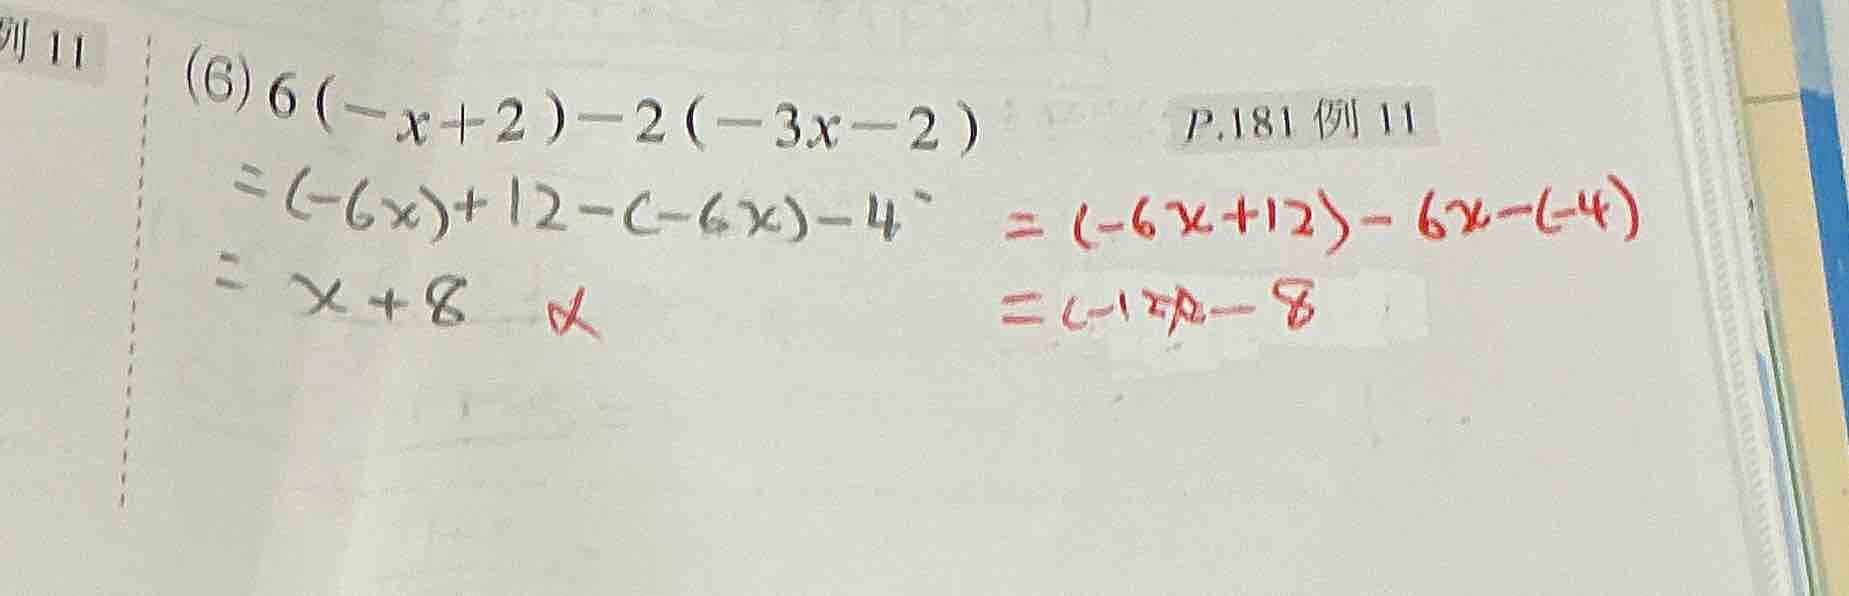 例 11
(6) 6(-x+2)-2(-3x-2)
P.181 例 11
=(-6x)+12-(-6x)-4
= x+8
=(-6x+12)-6x-(-4)
=(-12x-8